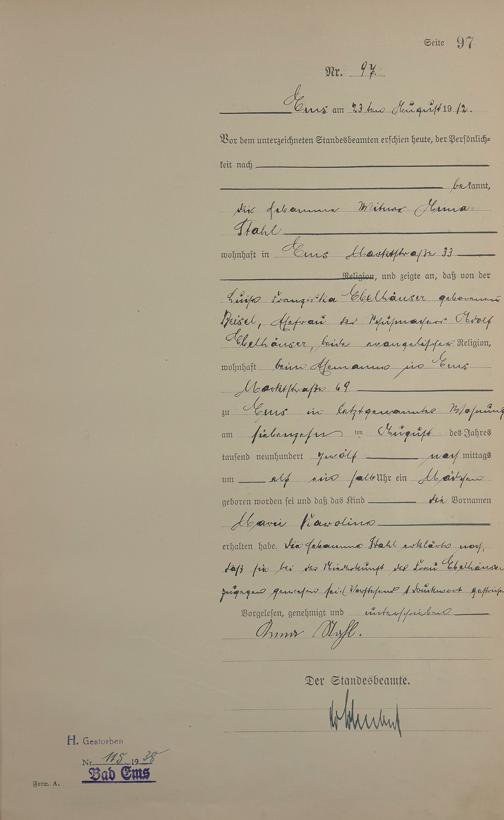 Seite 97
Nr. 97
Ems am 23ten August 1912.
Vor dem unterzeichneten Standesbeamten erschien heute, der Persönlich-
keit nach
bekannt,
die Hebamme Witwe Anna
Stahl
wohnhaft in Ems Marktstraße 33
Religion, und zeigte an, daß von der
Luise Franziska Ebelhäuser geborenen
Beisel, Ehefrau des Schuhmachers Adolf
Ebelhäuser, beide evangelischer Religion,
wohnhaft beim Ehemanne in Ems
Marktstraße 69
zu Ems in letztgenannter Wohnung
am siebenzehn ten August des Jahres
tausend neunhundert zwölf nach mittags
um elf ein halb Uhr ein Mädchen
geboren worden sei und daß das Kind die Vornamen
Marie Karoline
erhalten habe. Die Hebamme Stahl erklärte noch,
daß sie bei der Niederkunft der Frau Ebelhäuser
zugegen gewesen sei. Vorstehend 1 Druckwort gestrichen
Vorgelesen, genehmigt und unterschrieben
Anna Stahl.
Der Standesbeamte.
H. Gestorben
Nr. 115 1938
Bad Ems
Form. A.